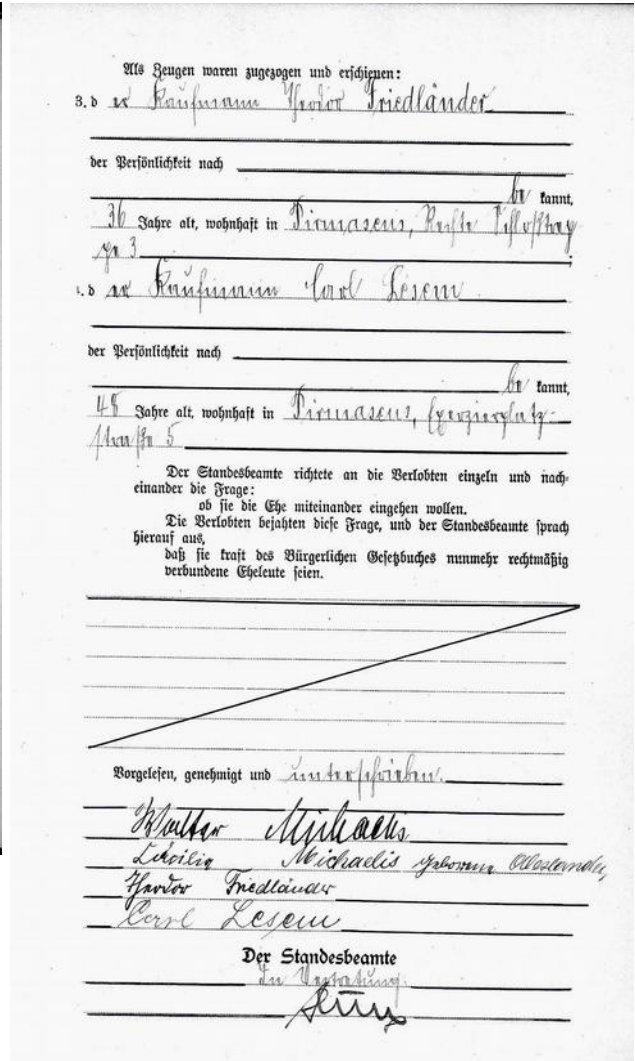 Als Zeugen waren zugezogen und erschienen:
3. d er Kaufmann Theodor Friedländer
der Persönlichkeit nach
be kannt,
36 Jahre alt, wohnhaft in Pirmasens, Rechte Schloßstra
ße 3
4. d er Kaufmann Carl Lesem
der Persönlichkeit nach
be kannt,
48 Jahre alt, wohnhaft in Pirmasens, Exerzierplatz-
straße 5
Der Standesbeamte richtete an die Verlobten einzeln und nach-
einander die Frage:
ob sie die Ehe miteinander eingehen wollen.
Die Verlobten bejahten diese Frage, und der Standesbeamte sprach
hierauf aus,
daß sie kraft des Bürgerlichen Gesetzbuches nunmehr rechtmäßig
verbundene Eheleute seien.
Vorgelesen, genehmigt und unterschrieben.
Walter Michaelis
Michaelis geborene
Theodor Friedländer
Carl Lesem
Der Standesbeamte
In Vertretung.